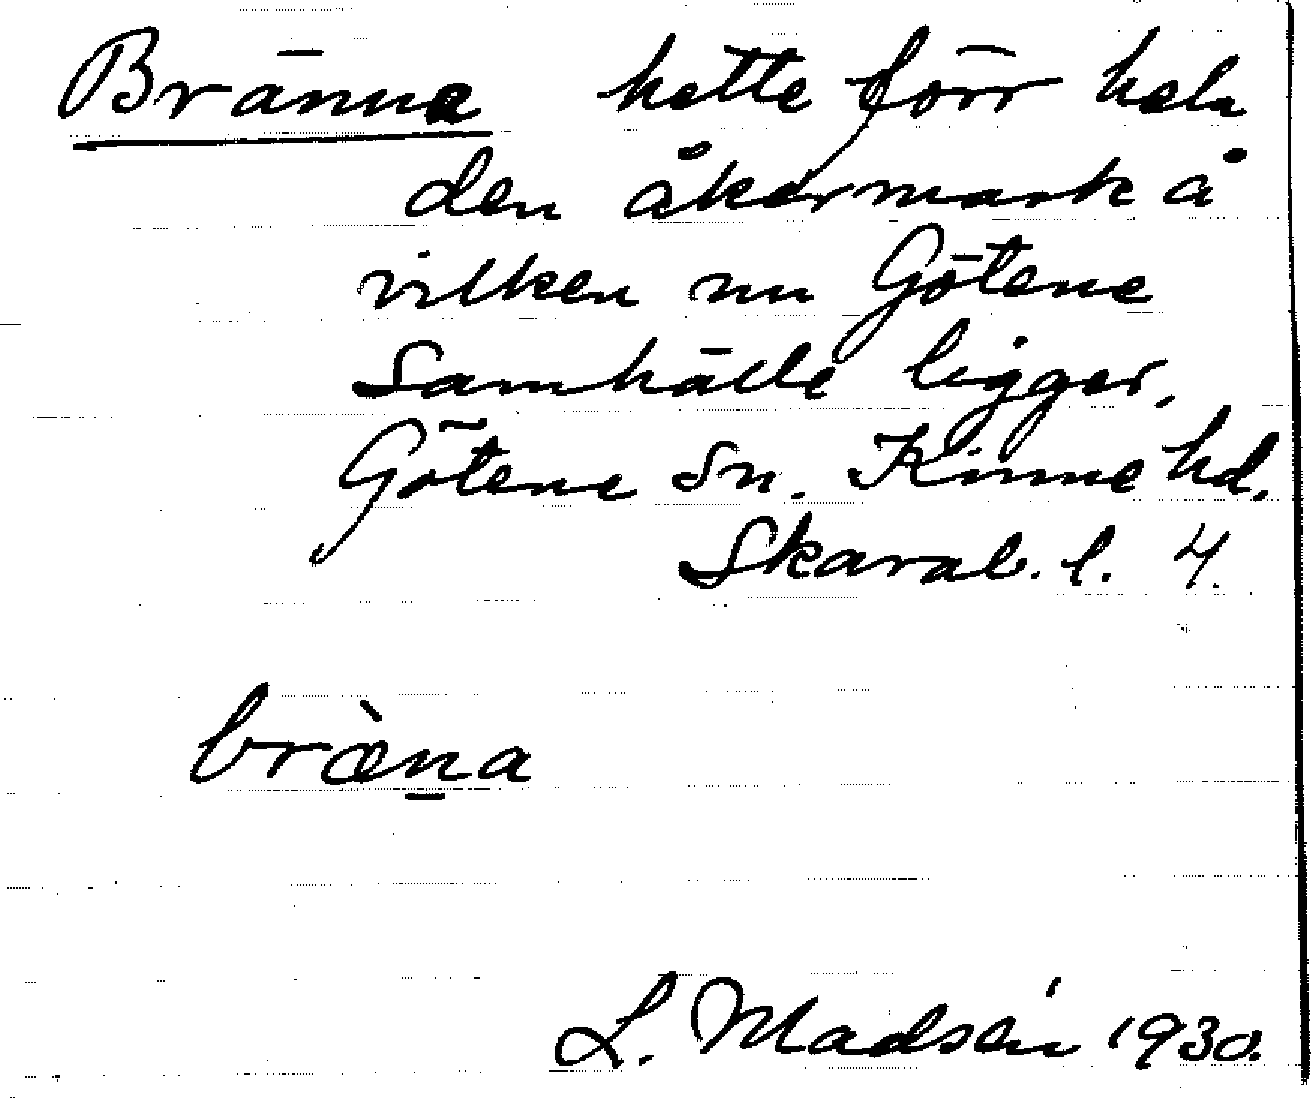 Bränne hette förr hela
den åkermark å
vilken nu Götene
Samhälle ligger.
Götene Sn. Kinne hd.
Skarab. l. 4.
bræ̀na
L. Madsén 1930.